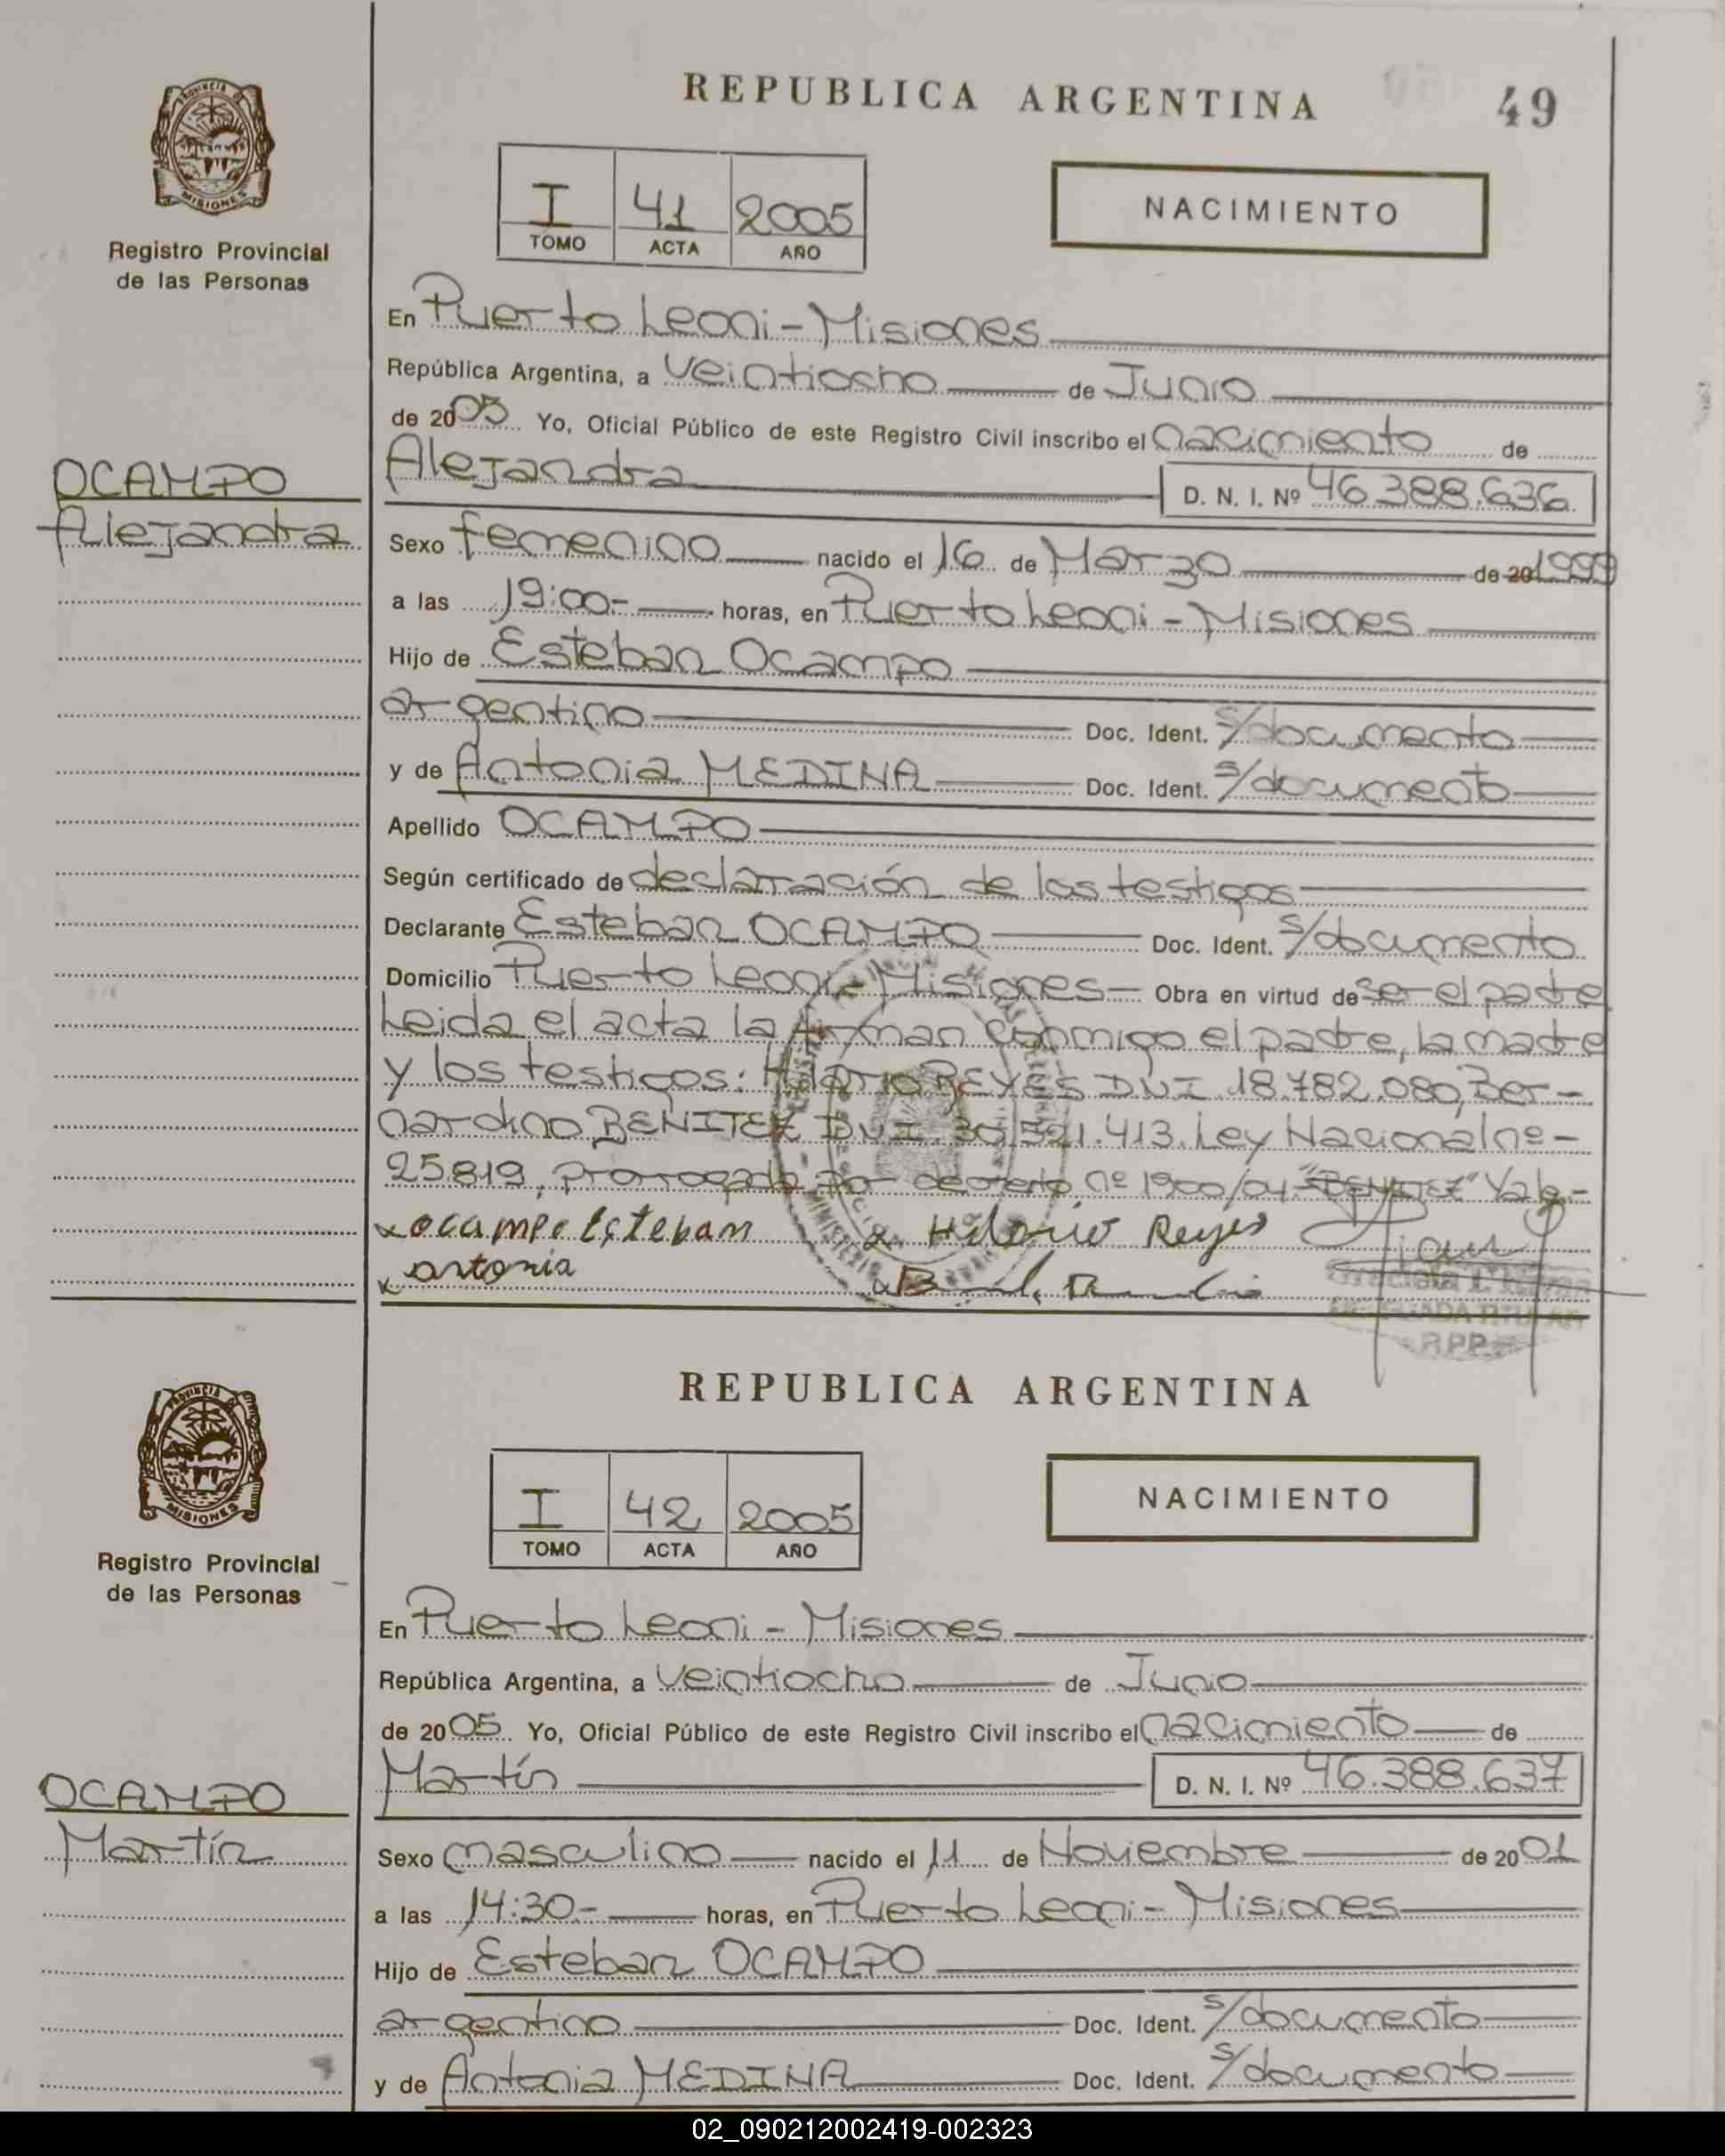 REPUBLICA ARGENTINA 49
PROVINCIA DE
MISIONES
Registro Provincial
de las Personas
I 41 2005
TOMO ACTA AÑO
NACIMIENTO
En Puerto Leoni - Misiones
República Argentina, a veintiocho de Junio
de 2005 Yo, Oficial Público de este Registro Civil inscribo el nacimiento de
OCAMPO
Alejandra
Alejandra D. N. I. Nº 46.388.636
Sexo femenino nacido el 16 de Marzo de 20 1999
a las 19:00- horas, en Puerto Leoni - Misiones
Hijo de Esteban Ocampo
argentino Doc. Ident. s/documento
y de Antonia MEDINA Doc. Ident. s/documento
Apellido OCAMPO
Según certificado de declaración de los testigos
Declarante Esteban OCAMPO Doc. Ident. s/documento
Domicilio Puerto Leoni - Misiones - Obra en virtud de ser el padre
Leida el acta la firman conmigo el padre, la madre
y los testigos: Hilario REYES DNI 18.782.080, Ber-
nardino BENITEZ DNI. 30.521.413. Ley Nacional nº-
25.819, prorrogada por decreto nº 1900/04. "BENITEZ" Vale.-
x Ocampo Esteban x Hilario Reyes
x antonia
DELEGADA TITULAR
R.P.P.
REPUBLICA ARGENTINA
PROVINCIA DE
MISIONES
Registro Provincial
de las Personas
I 42 2005
TOMO ACTA AÑO
NACIMIENTO
En Puerto Leoni - Misiones
República Argentina, a veintiocho de Junio
de 2005 Yo, Oficial Público de este Registro Civil inscribo el nacimiento de
OCAMPO
Martín
Martín D. N. I. Nº 46.388.637
Sexo masculino nacido el 11 de Noviembre de 2001
a las 14:30- horas, en Puerto Leoni - Misiones
Hijo de Esteban OCAMPO
argentino Doc. Ident. s/documento
y de Antonia MEDINA Doc. Ident. s/documento
02_090212002419-002323